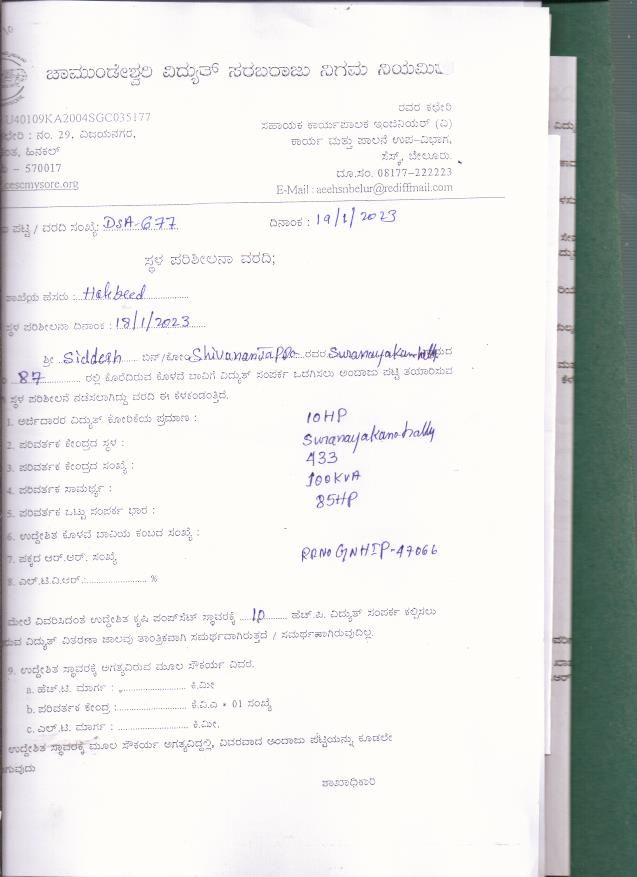 ಚಾಮುಂಡೇಶ್ವರಿ ವಿದ್ಯುತ್ ಸರಬರಾಜು ನಿಗಮ
U40109KA2004SGC035177
ನಂ. 29, ವಿಜಯನಗರ,
ಹಿನಕಲ್
– 570017
cescmysore.org
ರವರ ಕಛೇರಿ
ಸಹಾಯಕ ಕಾರ್ಯಪಾಲಕ ಇಂಜಿನಿಯರ್ (ವಿ)
ಕಾರ್ಯ ಮತ್ತು ಪಾಲನೆ ಉಪ–ವಿಭಾಗ,
ಸೆಸ್ಕ್, ಬೇಲೂರು.
ದೂ.ಸಂ. 08177–222223
E-Mail : aeehsnbelur@rediffmail.com
ಪಟ್ಟಿ / ವರದಿ ಸಂಖ್ಯೆ: DSA-677
ದಿನಾಂಕ : 19/1/2023
ಸ್ಥಳ ಪರಿಶೀಲನಾ ವರದಿ;
ಶಾಖೆಯ ಹೆಸರು : Halebeed
ಸ್ಥಳ ಪರಿಶೀಲನಾ ದಿನಾಂಕ : 18/1/2023
ಶ್ರೀ Siddesh ಬಿನ್/ಕೋಂ Shivananjappa ರವರ Suranayakanahally
87 ರಲ್ಲಿ ಕೊರೆದಿರುವ ಕೊಳವೆ ಬಾವಿಗೆ ವಿದ್ಯುತ್ ಸಂಪರ್ಕ ಒದಗಿಸಲು ಅಂದಾಜು ಪಟ್ಟಿ ತಯಾರಿಸುವ
ಸ್ಥಳ ಪರಿಶೀಲನೆ ನಡೆಸಲಾಗಿದ್ದು ವರದಿ ಈ ಕೆಳಕಂಡಂತಿದೆ.
1. ಅರ್ಜಿದಾರರ ವಿದ್ಯುತ್ ಕೋರಿಕೆಯ ಪ್ರಮಾಣ : 10HP
2. ಪರಿವರ್ತಕ ಕೇಂದ್ರದ ಸ್ಥಳ : Suranayakanahally
3. ಪರಿವರ್ತಕ ಕೇಂದ್ರದ ಸಂಖ್ಯೆ : 433
4. ಪರಿವರ್ತಕ ಸಾಮರ್ಥ್ಯ : 100KVA
5. ಪರಿವರ್ತಕ ಒಟ್ಟು ಸಂಪರ್ಕ ಭಾರ : 85HP
6. ಉದ್ದೇಶಿತ ಕೊಳವೆ ಬಾವಿಯ ಕಂಬದ ಸಂಖ್ಯೆ :
7. ಪಕ್ಕದ ಆರ್.ಆರ್. ಸಂಖ್ಯೆ RRNO GNHIP-47066
8. ಎಲ್.ಟಿ.ವಿ.ಆರ್.:........................ %
ಮೇಲೆ ವಿವರಿಸಿದಂತೆ ಉದ್ದೇಶಿತ ಕೃಷಿ ಪಂಪ್‌ಸೆಟ್ ಸ್ಥಾವರಕ್ಕೆ 10 ಹೆಚ್.ಪಿ. ವಿದ್ಯುತ್ ಸಂಪರ್ಕ ಕಲ್ಪಿಸಲು
ವಿದ್ಯುತ್ ವಿತರಣಾ ಜಾಲವು ತಾಂತ್ರಿಕವಾಗಿ ಸಮರ್ಥವಾಗಿರುತ್ತದೆ / ಸಮರ್ಥವಾಗಿರುವುದಿಲ್ಲ.
9. ಉದ್ದೇಶಿತ ಸ್ಥಾವರಕ್ಕೆ ಅಗತ್ಯವಿರುವ ಮೂಲ ಸೌಕರ್ಯ ವಿವರ.
a. ಹೆಚ್.ಟಿ. ಮಾರ್ಗ : ........................ ಕಿ.ಮೀ
b. ಪರಿವರ್ತಕ ಕೇಂದ್ರ :........................ ಕೆ.ವಿ.ಎ * 01 ಸಂಖ್ಯೆ
c. ಎಲ್.ಟಿ. ಮಾರ್ಗ : ........................ ಕಿ.ಮೀ.
ಉದ್ದೇಶಿತ ಸ್ಥಾವರಕ್ಕೆ ಮೂಲ ಸೌಕರ್ಯ ಅಗತ್ಯವಿದ್ದಲ್ಲಿ, ವಿವರವಾದ ಅಂದಾಜು ಪಟ್ಟಿಯನ್ನು ಕೂಡಲೇ
ಶಾಖಾಧಿಕಾರಿ